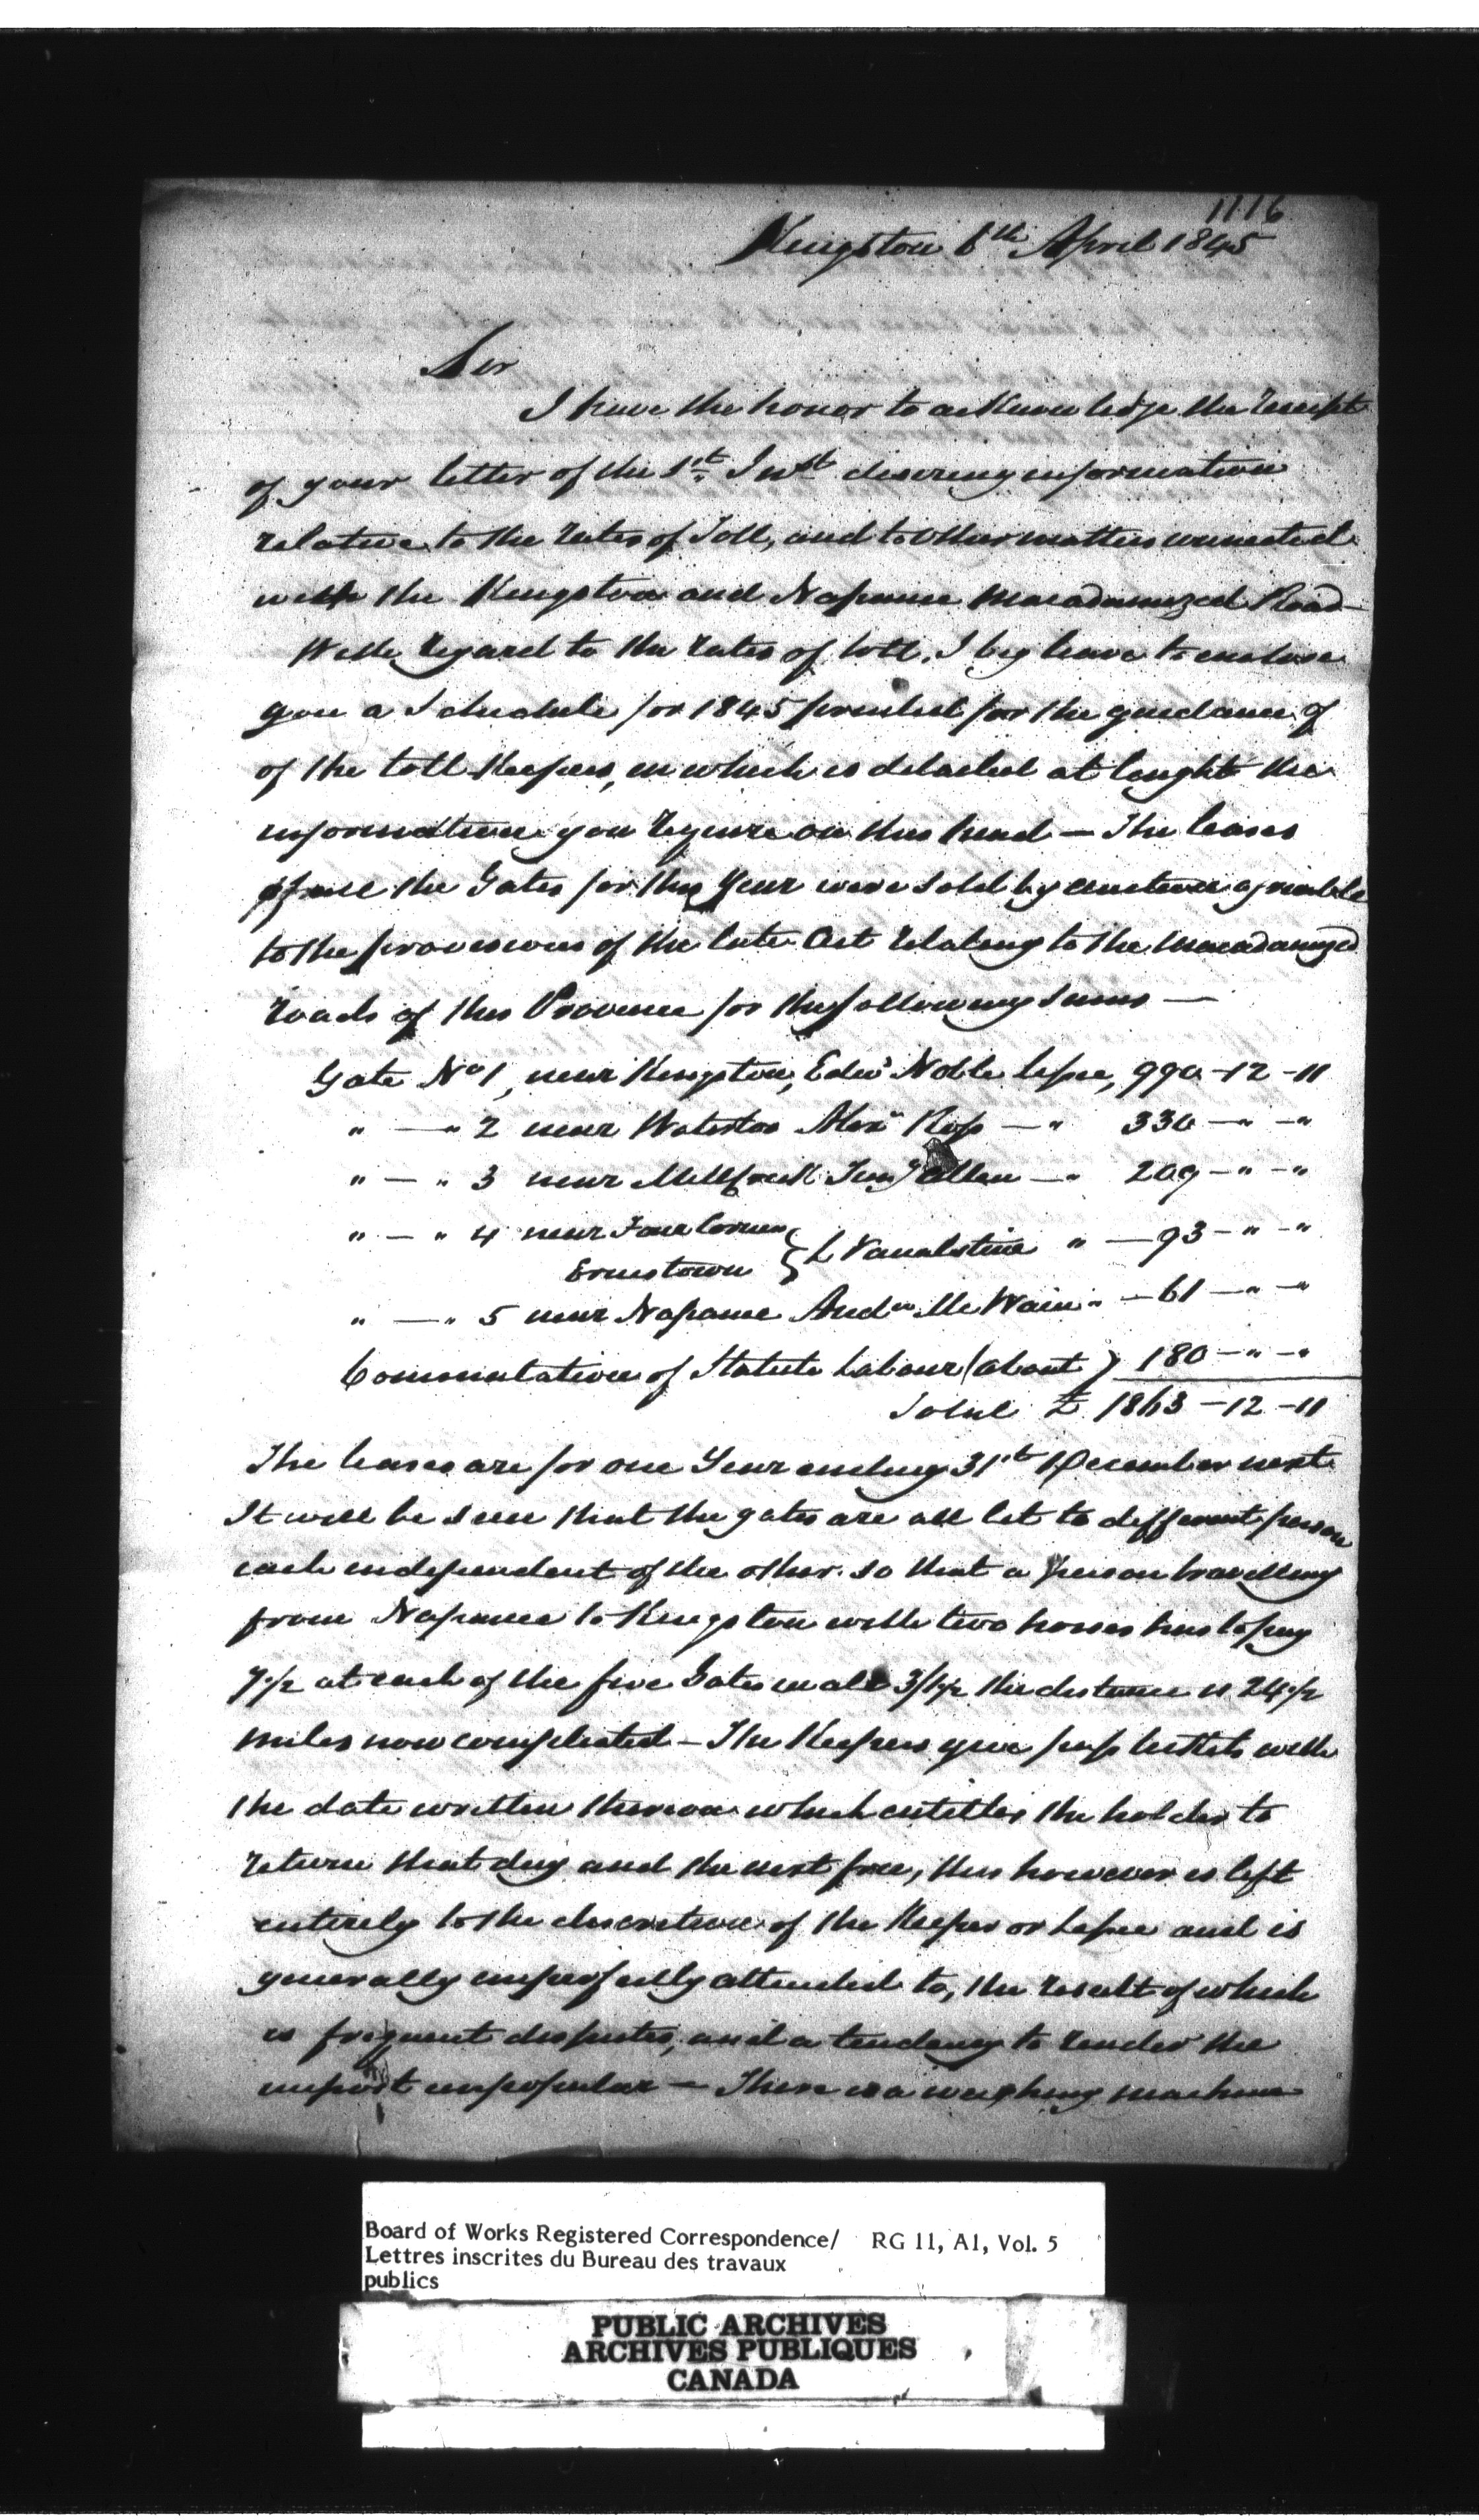 1116
Kingston 6th April 1845
Sir
I have the honor to acknowledge the receipt
of your letter of the 1st Inst desireing information
relative to the rates of Toll, and to other matters connected
with the Kingston and Napanee Macadamized Road—
With regard to the rates of toll, I beg leave to enclose
you a Schedule for 1845 printed for the guidance of
of the toll Keepers, in which is detailed at lenght the
information you require on this head — The leases
of all the Gates for this Year were sold by auction agreeable
to the provisions of the late Act relating to the Macadamized
roads of this Province for the following sums —
Gate No 1, near Kingston, Edwd Noble lessee, 990 -12 -11
" — " 2 near Waterloo Alexr Ross — " 330 — " — "
" — " 3 near Millcreek Jas Allen — " 209 — " — "
" — " 4 near Four Corners
Ernestown } L Vanalstine " — 93 — " — "
" — " 5 near Napanee Andw McWain " — 61 — " — "
Commutation of Statute Labour (about) 180 — " — "
Total £ 1863 -12 -11
The leases are for one Year ending 31st December next.
It will be seen that the gates are all let to different person
each independent of the other. so that a person travelling
from Napanee to Kingston with two horses has to pay
7½ at each of the five Gates in all 3/1½ the distance is 24½
miles now completed — The Keepers give pass tickets with
the date written thereon which entitles the holder to
return that day and the next free, this however is left
entirely to the discretion of the Keeper or Lessee and is
generally imperfectly attended to, the result of which
is frequent disputes, and a tendency to render the
impost unpopular — There is a weighing machine
Board of Works Registered Correspondence/ RG 11, A1, Vol. 5
Lettres inscrites du Bureau des travaux
publics
PUBLIC ARCHIVES
ARCHIVES PUBLIQUES
CANADA